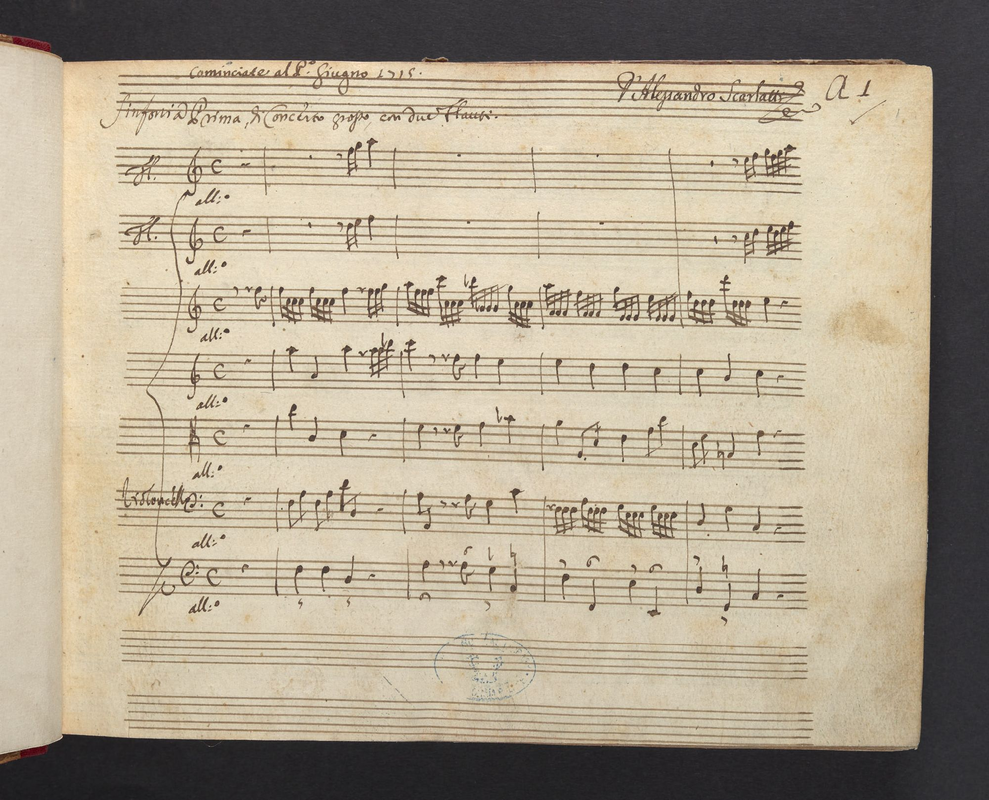 Cominciate al P.º Giugno 1715.
D'Alessandro Scarlatti
A 1
Sinfonia Prima, di Concerto grosso con due Flauti.
fl.
all:º
fl.
all:º
all:º
all:º
all:º
Violoncello
all:º
all:º